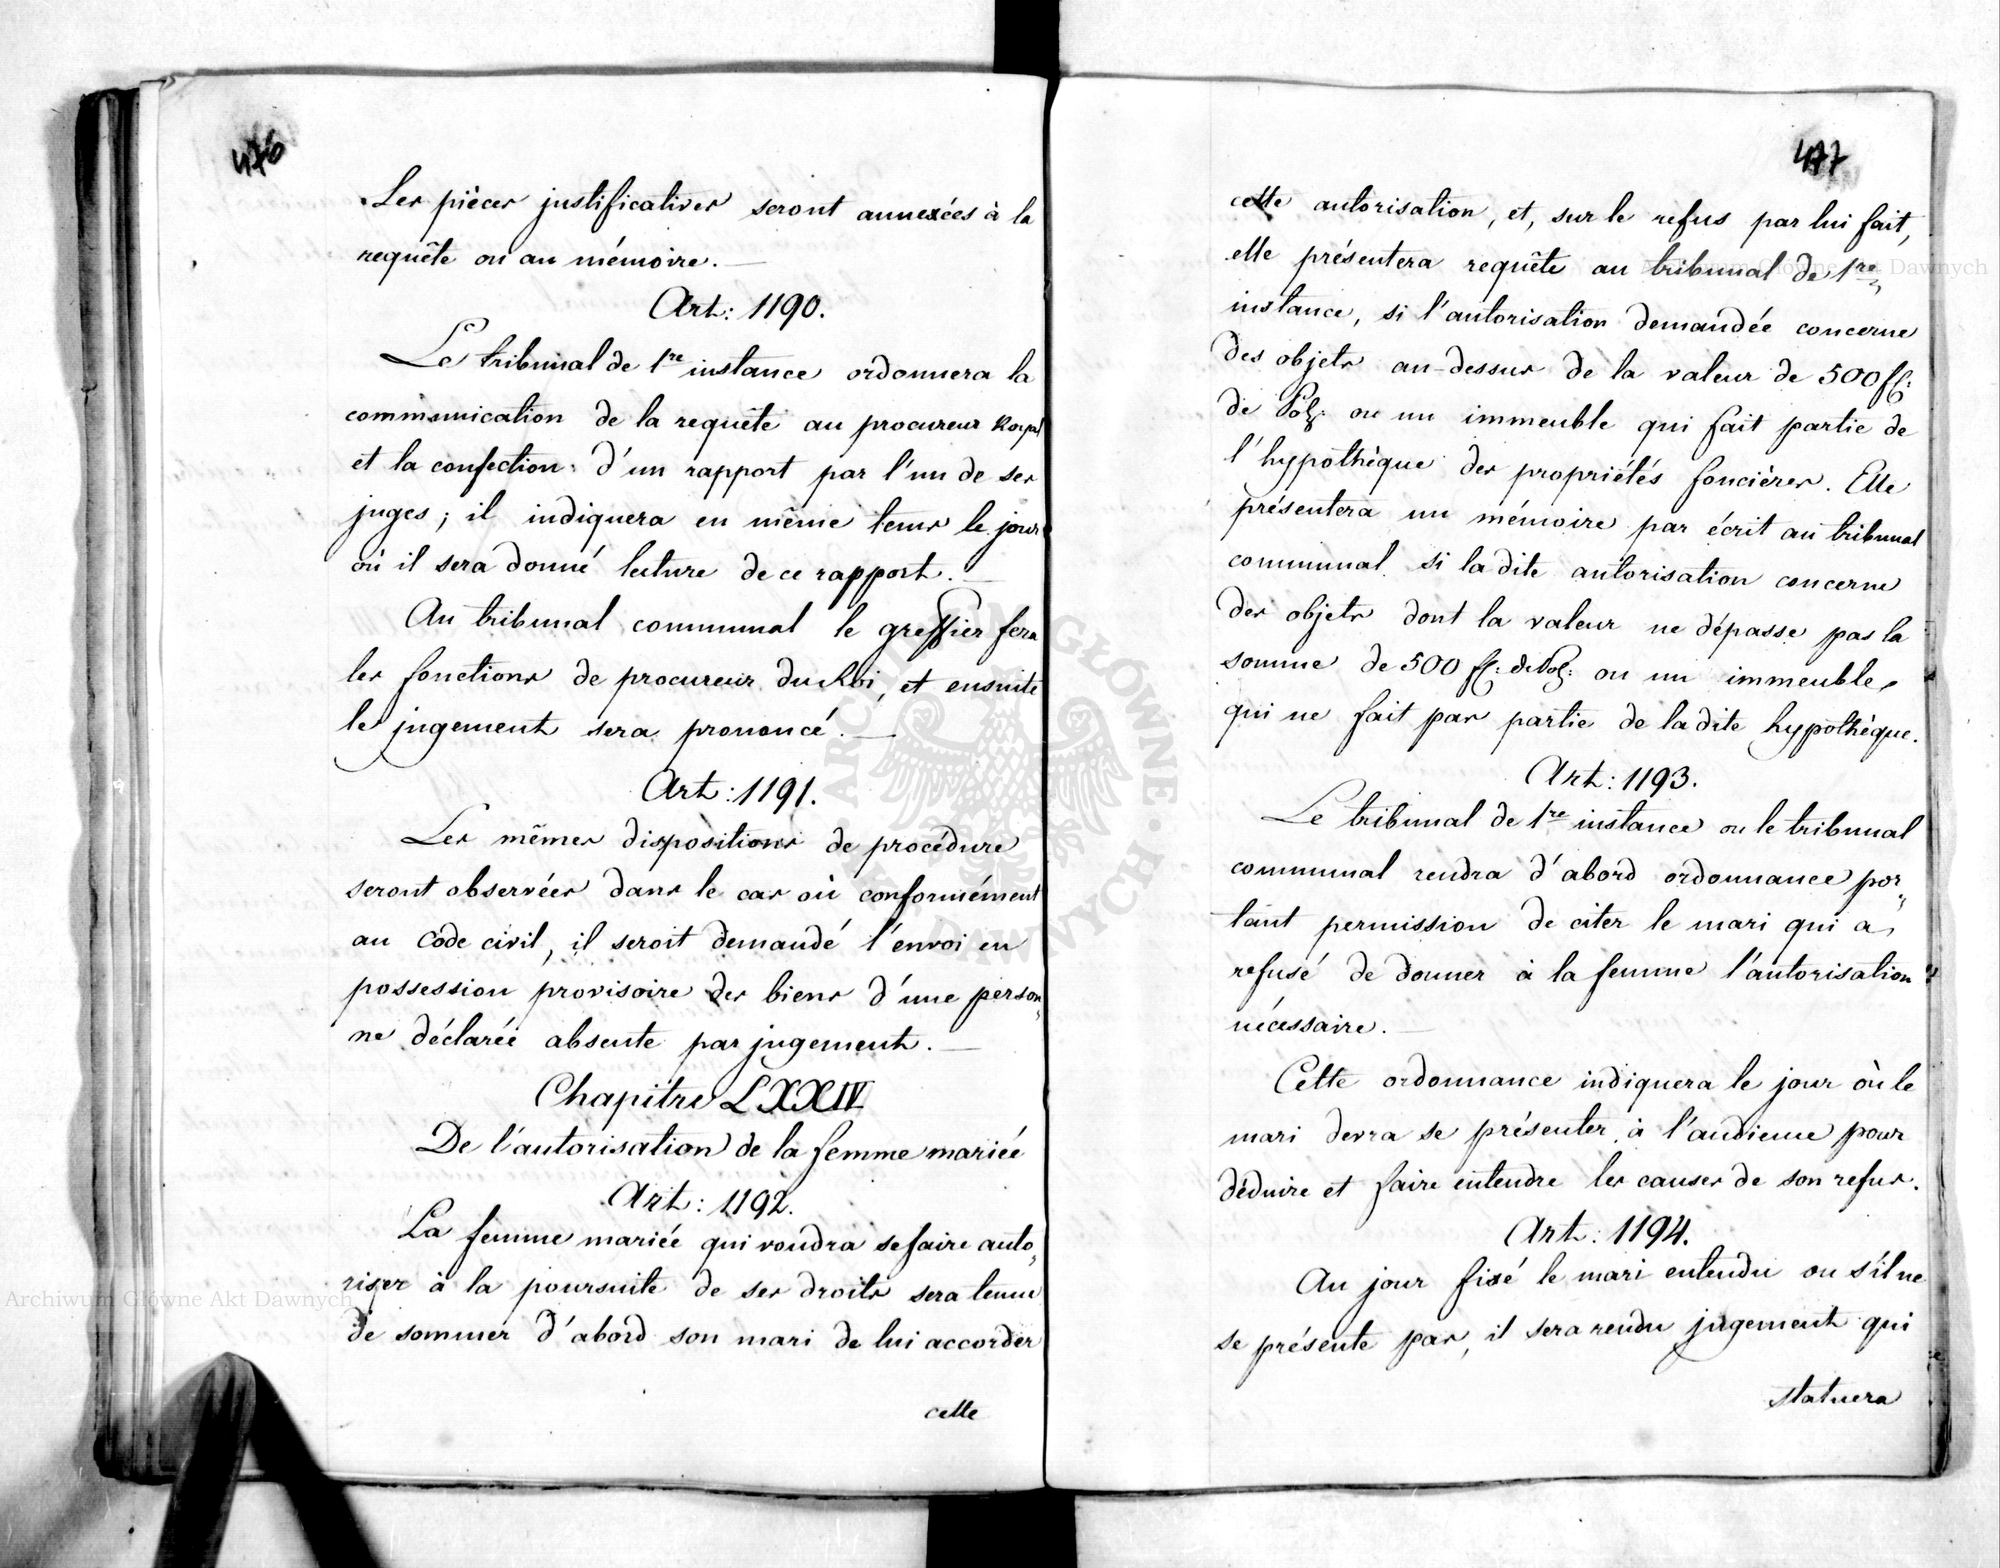 476
Les pièces justificatives seront annexées à la
requête ou au mémoire. —
Art: 1190.
Le tribunal de 1re instance ordonnera la
communication de la requête au procureur Royal
et la confection d'un rapport par l'un de ses
juges; il indiquera en même tems le jour
où il sera donné lecture de ce rapport. —
Au tribunal communal le greffier fera
les fonctions de procureur du Roi, et ensuite
le jugement sera prononcé. —
Art: 1191.
Les mêmes dispositions de procédure
seront observées dans le cas où conformément
au Code civil, il seroit demandé l'envoi en
possession provisoire des biens d'une person„
ne déclarée absente par jugement. —
Chapitre LXXIV
De l'autorisation de la femme mariée
Art: 1192.
La femme mariée qui voudra se faire auto„
riser à la poursuite de ses droits sera tenue
de sommer d'abord son mari de lui accorder
cette
477
cette autorisation, et, sur le refus par lui fait,
elle présentera requête au tribunal de 1re
instance, si l'autorisation demandée concerne
des objets au-dessus de la valeur de 500 fl:
de Pol: ou un immeuble qui fait partie de
l'hypothèque des propriétés foncières. Elle
présentera un mémoire par écrit au tribunal
communal si la dite autorisation concerne
des objets dont la valeur ne dépasse pas la
somme de 500 fl: de Pol: ou un immeuble
qui ne fait pas partie de la dite hypothèque.
Art: 1193.
Le tribunal de 1re instance ou le tribunal
communal rendra d'abord ordonnance por„
tant permission de citer le mari qui a
refusé de donner à la femme l'autorisation
nécessaire. —
Cette ordonnance indiquera le jour où le
mari devra se présenter à l'audience pour
déduire et faire entendre les causes de son refus.
Art: 1194.
Au jour fixé le mari entendu ou s'il ne
se présente pas, il sera rendu jugement qui
statuera
ARCHIWUM GŁÓWNE AKT DAWNYCH
Archiwum Główne Akt Dawnych
Archiwum Główne Akt Dawnych